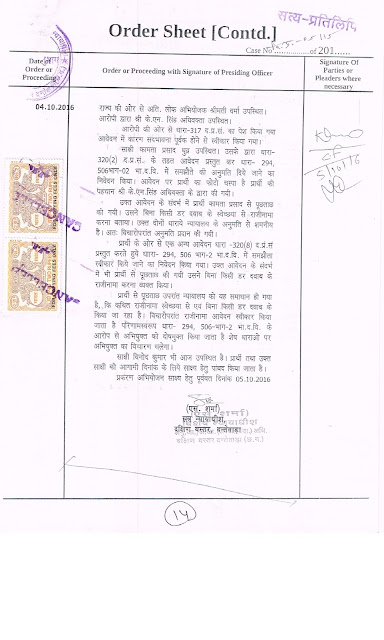 सत्य-प्रतिलिपि
Order Sheet [Contd.]
Case No of 201......
Date of
Order or
Proceeding
Order or Proceeding with Signature of Presiding Officer
Signature Of
Parties or
Pleaders where
necessary
04.10.2016
राज्य की ओर से अति. लोक अभियोजक श्रीमती वर्मा उपस्थित।
आरोपी द्वारा श्री के.एन. सिंह अधिवक्ता उपस्थित।
आरोपी की ओर से धारा-317 द.प्र.सं. का पेश किया गया
आवेदन में कारण सदभावना पूर्वक होने से स्वीकार किया गया।
साक्षी कामता प्रसाद उपस्थित। उसके द्वारा धारा-
320(2) द.प्र.सं. के तहत आवेदन प्रस्तुत कर धारा- 294,
506भाग-02 भा.द.वि. में समझौते की अनुमति दिये जाने का
निवेदन किया। आवेदन पर प्रार्थी का फोटो चस्पा है प्रार्थी की
पहचान श्री के.एन.सिंह अधिवक्ता के द्वारा की गयी।
उक्त आवेदन के संदर्भ में प्रार्थी कामता प्रसाद से पूछताछ
की गयी। उसने बिना किसी डर दबाव के स्वेच्छया से राजीनामा
करना बताया। उक्त दोनों धाराये न्यायालय के अनुमति से शमनीय
है। अतः विचारोपरांत अनुमति प्रदान की गयी।
प्रार्थी के ओर से एक अन्य आवेदन धारा -320(8) द.प्र.सं
प्रस्तुत करते हुये धारा- 294, 506 भाग-2 भा.द.वि. में समझौता
स्वीकार किये जाने का निवेदन किया गया। उक्त आवेदन के संदर्भ
में भी प्रार्थी से पूछताछ की गयी उसने बिना किसी डर दबाव के
राजीनामा करना व्यक्त किया।
प्रार्थी से पूछताछ उपरांत न्यायालय को यह समाधान हो गया
है, कि कथित राजीनामा स्वेच्छया से एवं बिना किसी डर दबाव के
किया जा रहा है। विचारोपरांत राजीनामा आवेदन स्वीकार किया
जाता है परिणामस्वरूप धारा- 294, 506-भाग-2 भा.द.वि. के
आरोप से अभियुक्त को दोषमुक्त किया जाता है शेष धाराओं पर
अभियुक्त का विचारण चलेगा।
साक्षी विनोद कुमार भी आज उपस्थित है। प्रार्थी तथा उक्त
साक्षी को आगामी दिनांक के लिये साक्ष्य हेतु पाबंद किया जाता है।
प्रकरण अभियोजन साक्ष्य हेतु पूर्ववत दिनांक 05.10.2016
(एस. शर्मा)
सत्र न्यायाधीश
दक्षिण बस्तर, दन्तेवाड़ा
दक्षिण बस्तर दन्तेवाड़ा (छ.ग.)
CANCELLED
CANCELLED
14